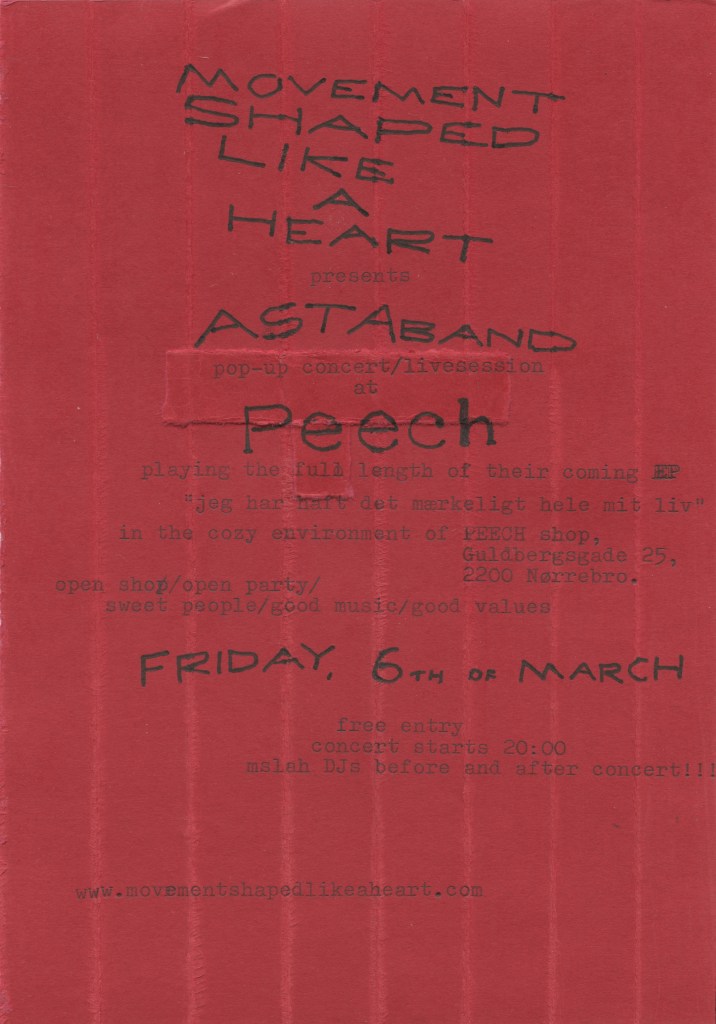 MOVEMENT
SHAPED
LIKE
A
HEART
presents
ASTABAND
pop-up concert/livesession
at
Peech
playing the full length of their coming EP
"jeg har haft det mærkeligt hele mit liv"
in the cozy environment of PEECH shop,
Guldbergsgade 25,
2200 Nørrebro.
open shop/open party/
sweet people/good music/good values
FRIDAY, 6TH OF MARCH
free entry
concert starts 20:00
mslah DJs before and after concert!!!
www.movementshapedlikeaheart.com